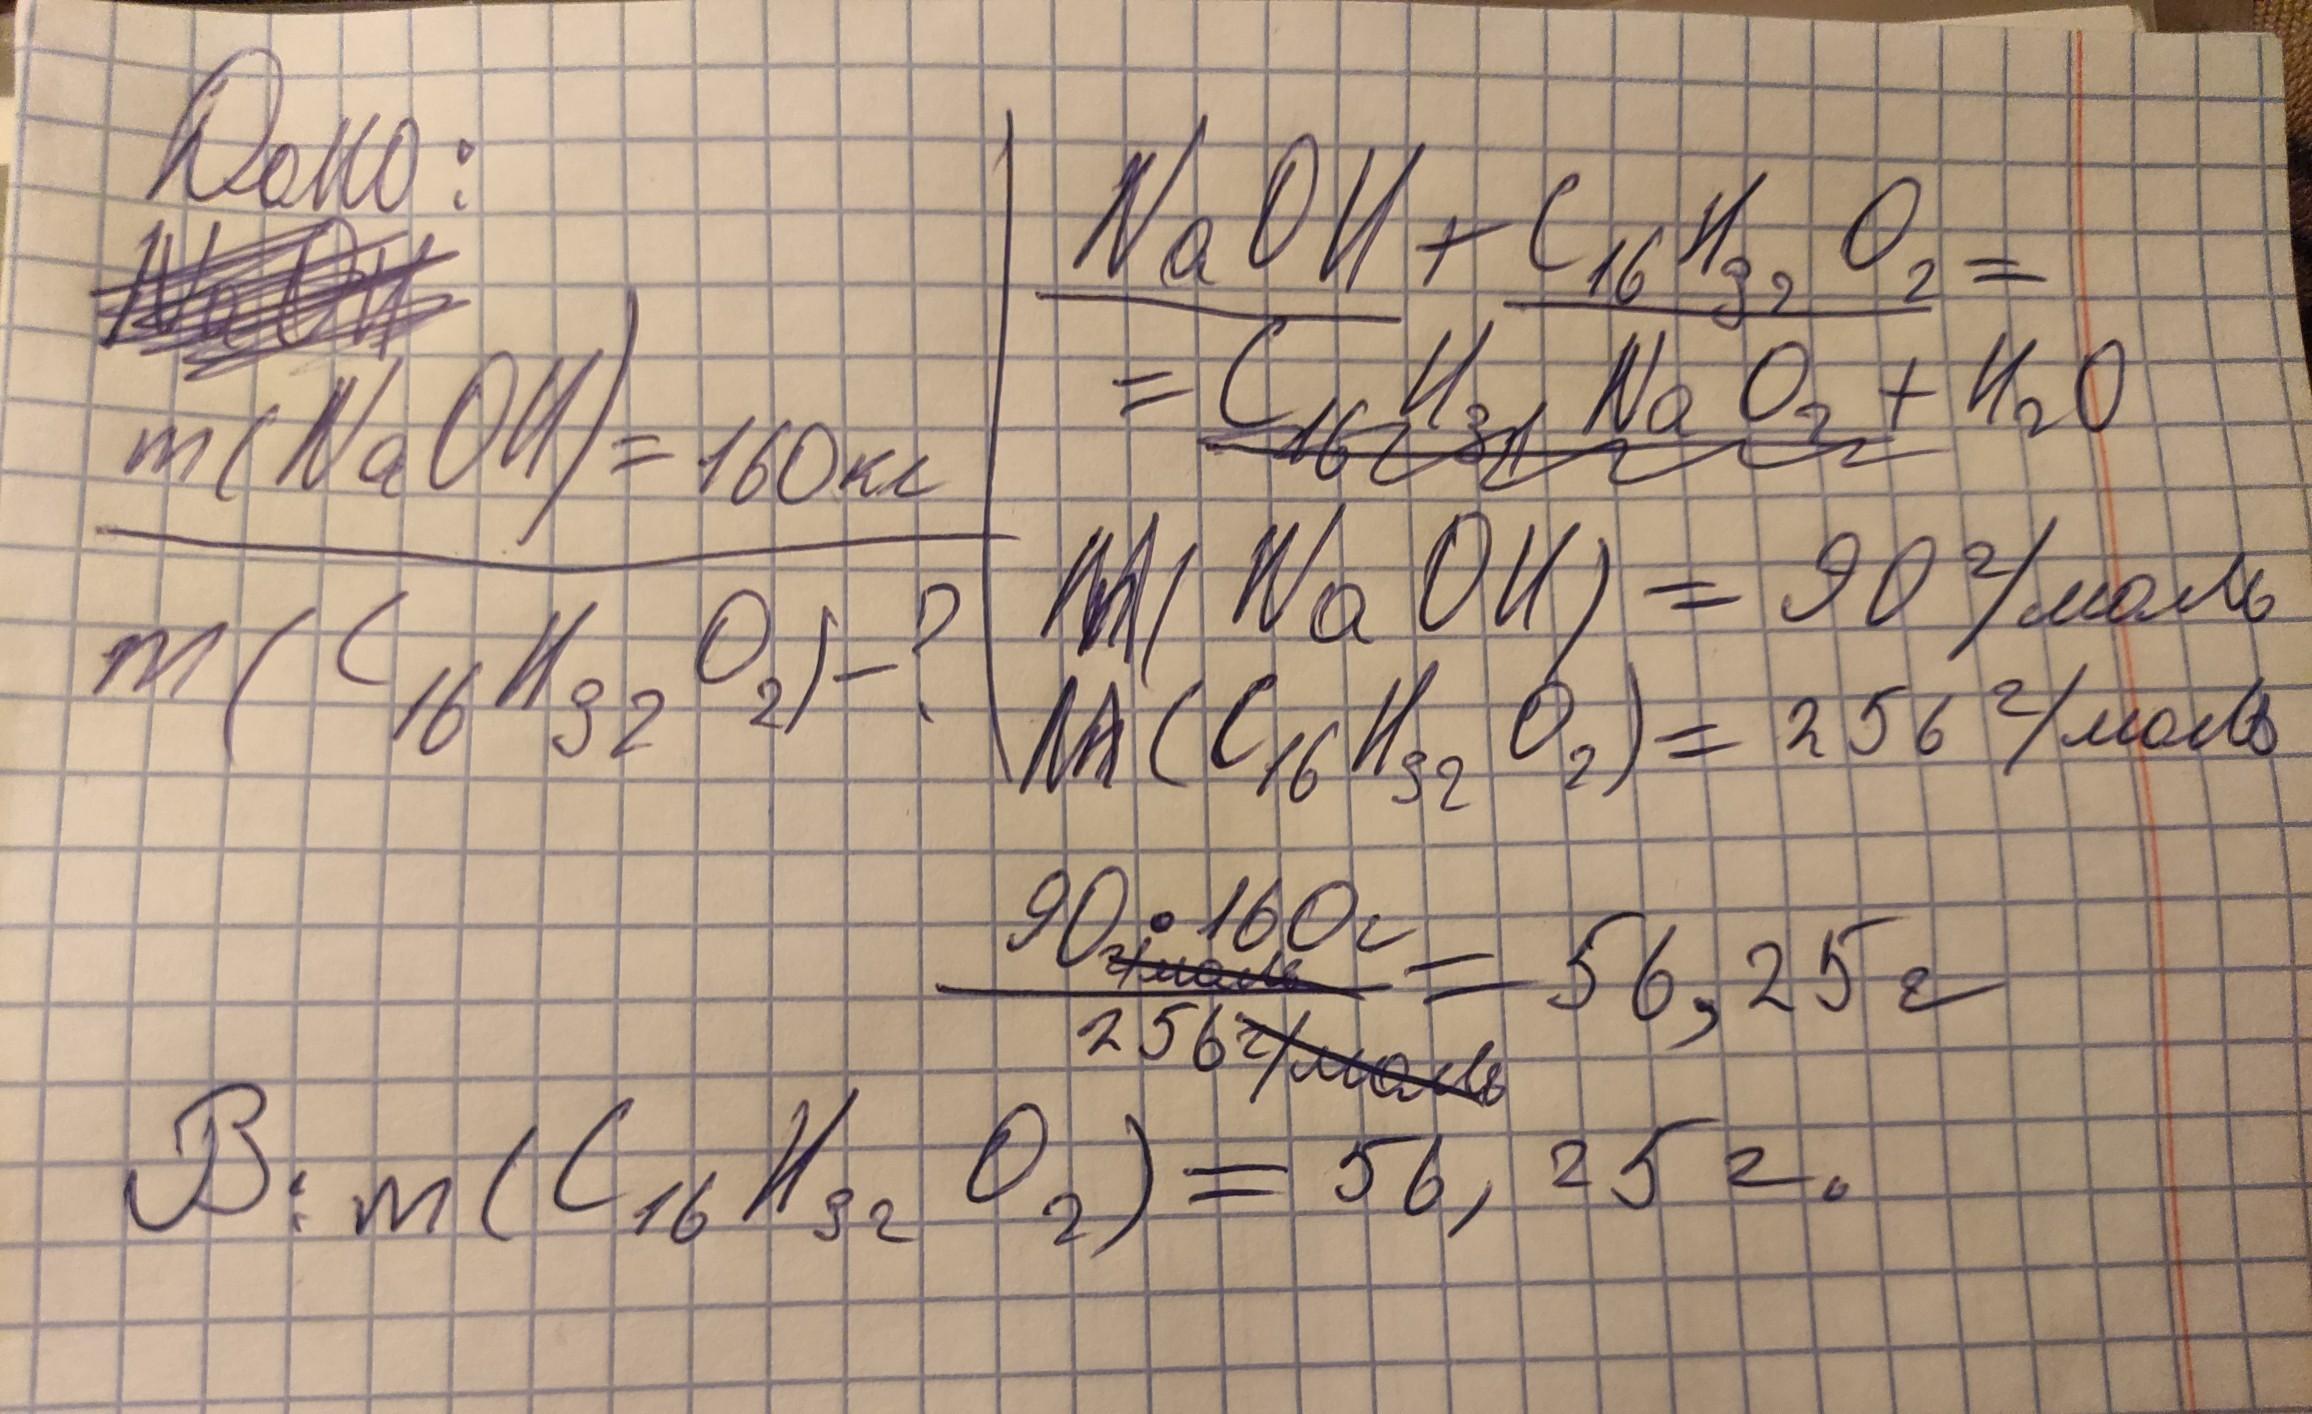 Дано:
m(NaOH)=160кг
m(C₁₆H₃₂O₂)-?
NaOH+C₁₆H₃₂O₂=
=C₁₆H₃₁NaO₂+H₂O
M(NaOH)=90г/моль
M(C₁₆H₃₂O₂)=256г/моль
90г/моль•160г
256г/моль
=56,25г
В:m(C₁₆H₃₂O₂)=56,25г.